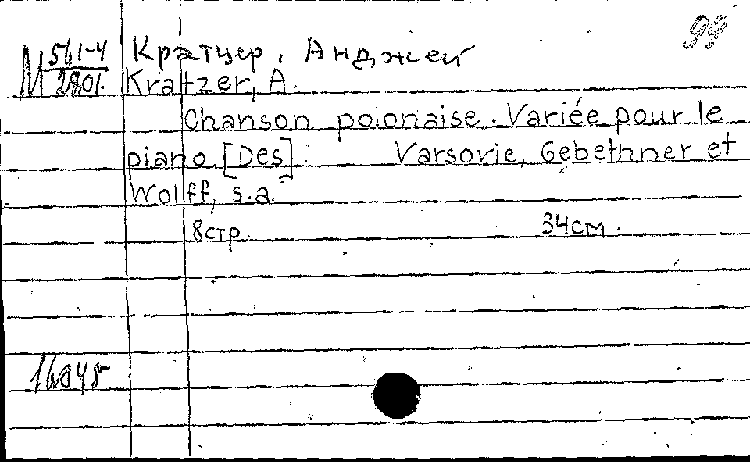 99
М 561-4
2801.
Кратцер, Анджей
Kratzer, A.
Chanson polonaise. Variée pour le
piano [Des]. Varsovie, Gebethner et
Wolff, s.a
8стр. 34см.